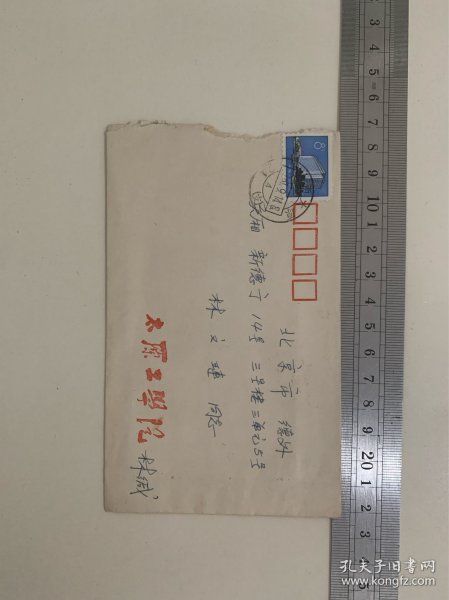 北京市 德外
关厢 新德门 14号 三号楼三单元5号
林 同志
太原工学院 林缄
8
3
4
5
6
7
8
9
10
1
2
3
4
5
6
7
8
9
20
1
2
3
4
5
孔夫子旧书网
www.kongfz.com